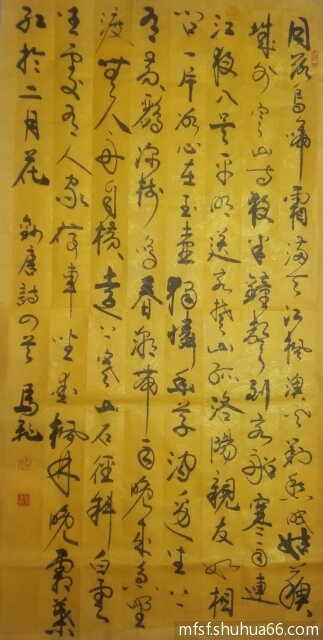 月落烏啼霜滿天江楓漁火對愁眠姑蘇
城外寒山寺夜半鐘聲到客船寒雨連
江夜入吳平明送客楚山孤洛陽親友如相
問一片冰心在玉壺獨憐幽草澗邊生上
有黃鸝深樹鳴春潮帶雨晚來急野
渡無人舟自橫遠上寒山石徑斜白雲
生處有人家停車坐愛楓林晚霜葉
紅於二月花 錄唐詩四首 馬
mfsf.shuhua66.com